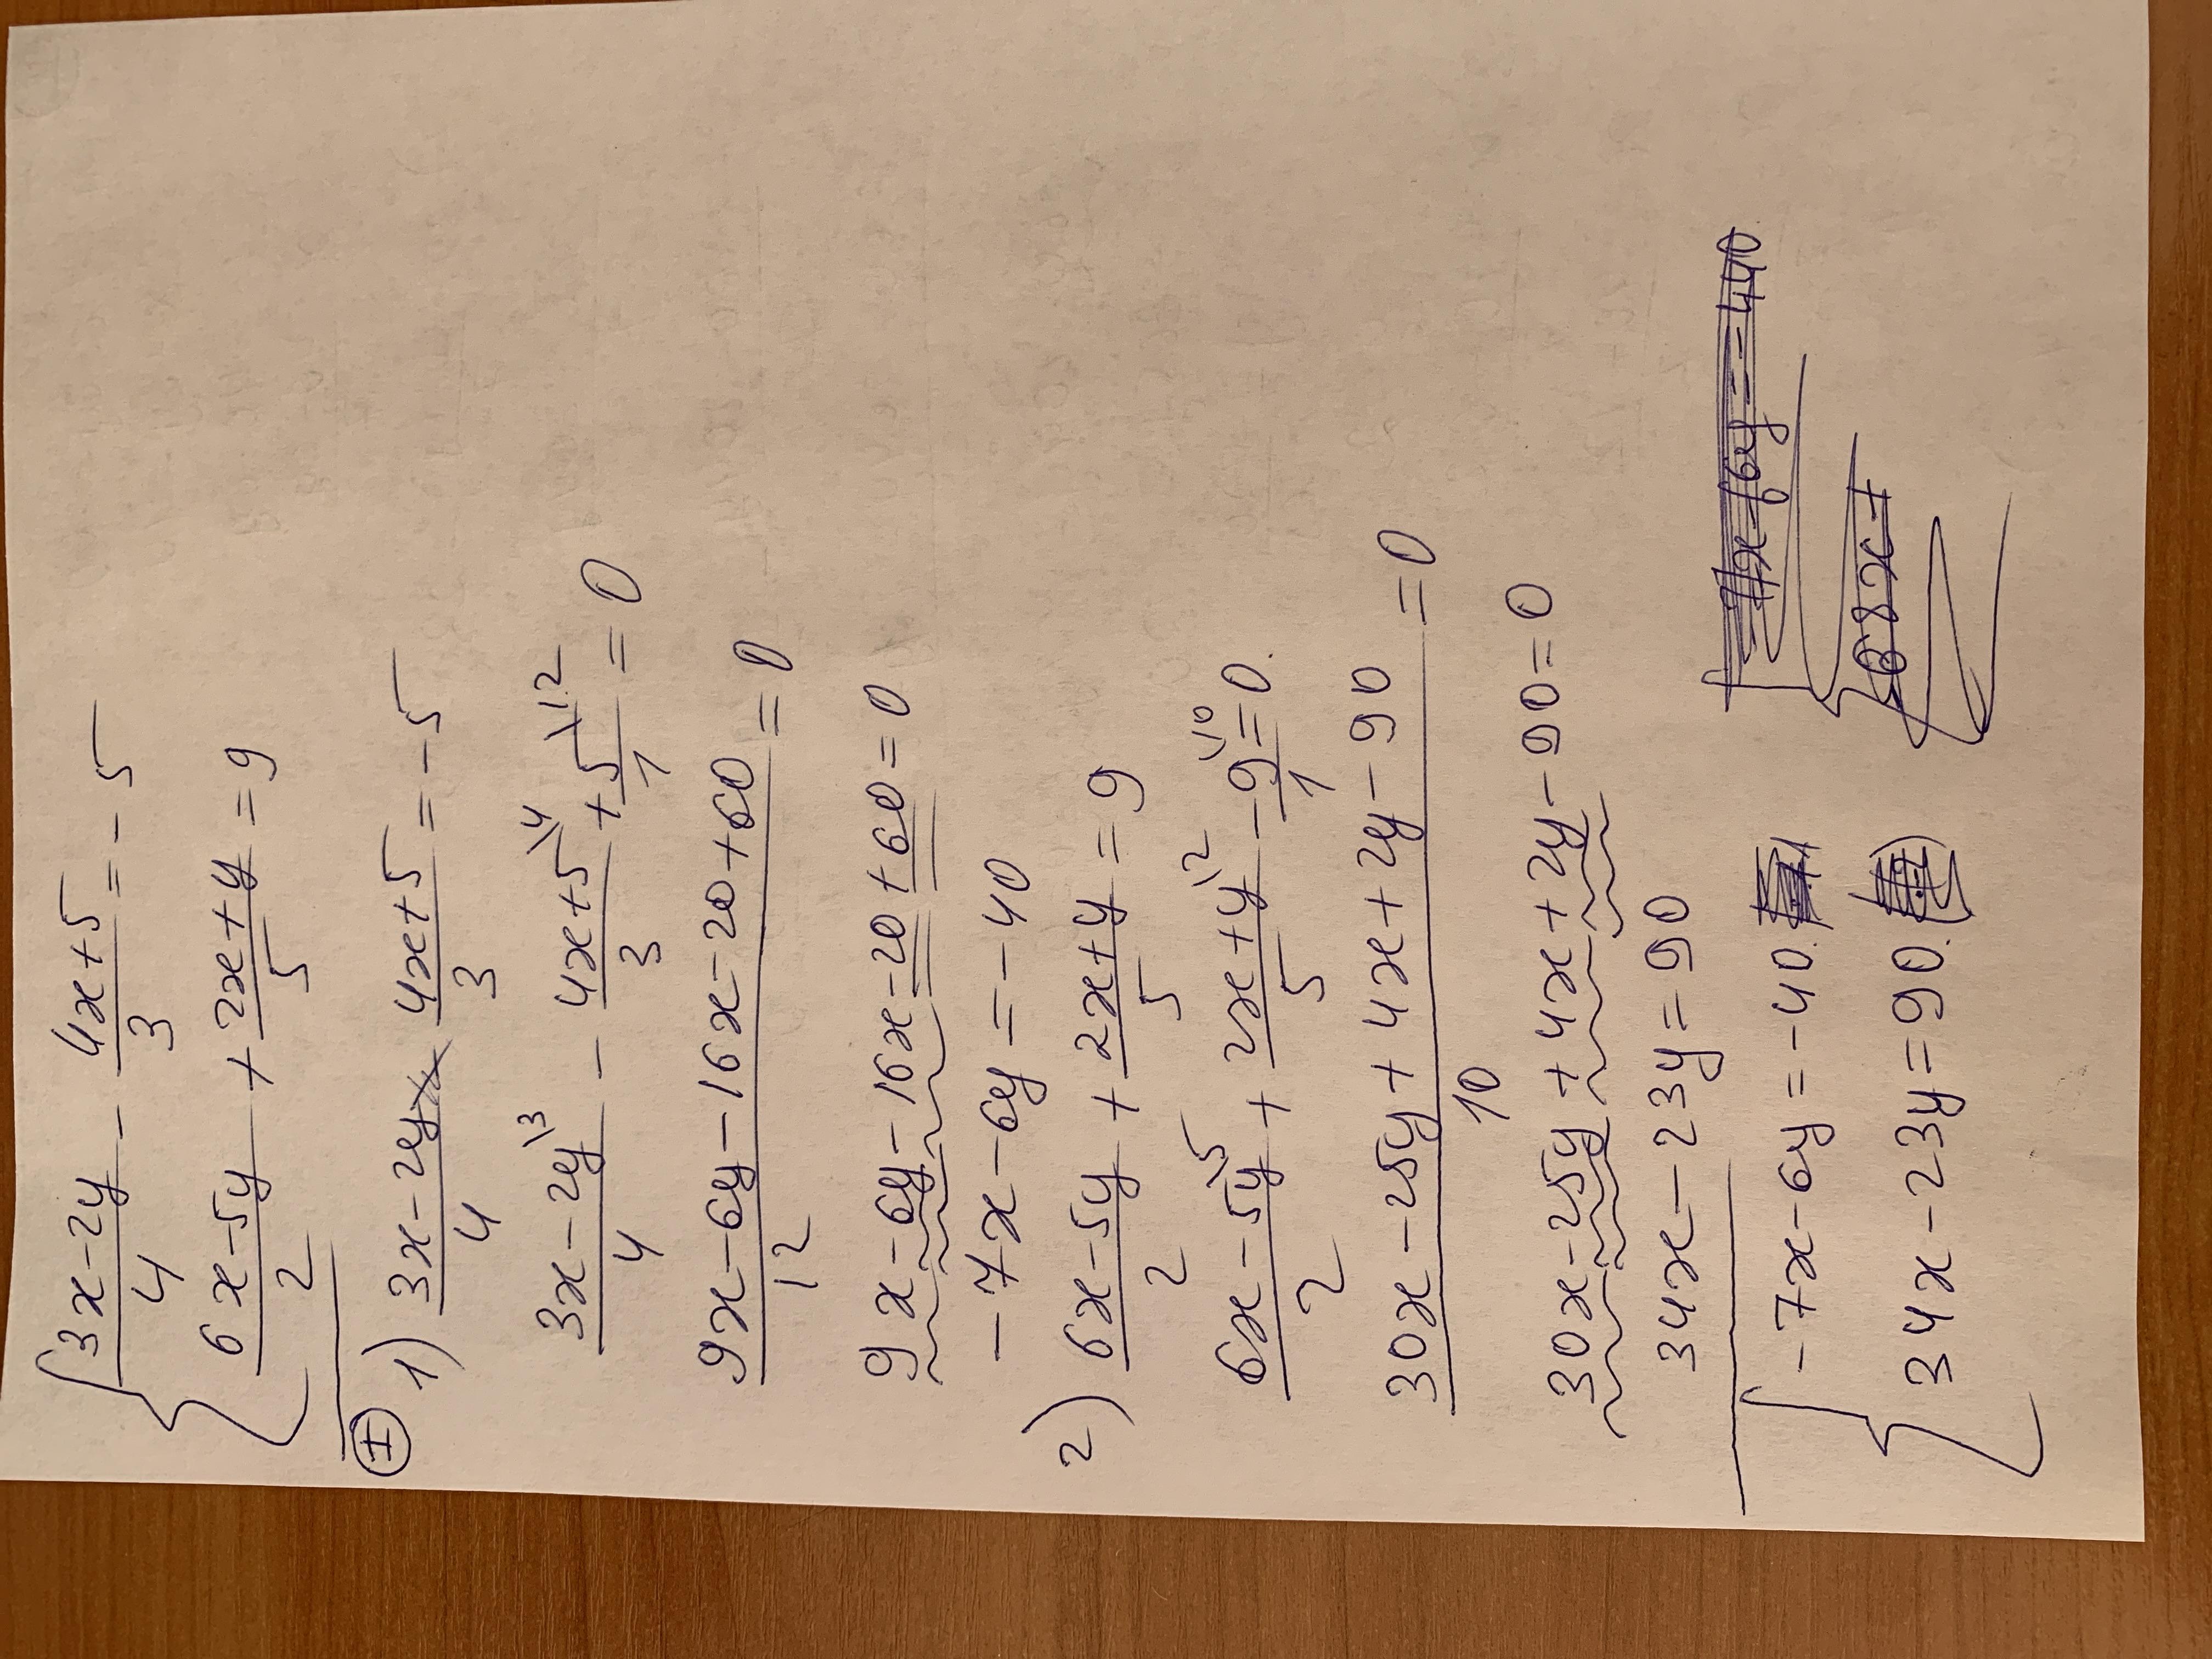 { (3x-2y)/4 - (4x+5)/3 = -5
(6x-5y)/2 + (2x+y)/5 = 9
I 1) (3x-2y)/4 (4x+5)/3 = -5
(3x-2y\3)/4 - (4x+5\4)/3 + 5\12/1 = 0
(9x-6y-16x-20+60)/12 = 0
9x-6y-16x-20+60=0
-7x-6y=-40
2) (6x-5y)/2 + (2x+y)/5 = 9
(6x-5y\5)/2 + (2x+y\2)/5 - 9\10/1 = 0.
(30x-25y+4x+2y-90)/10 = 0
30x-25y+4x+2y-90=0
34x-23y=90
{ -7x-6y=-40.
34x-23y=90.